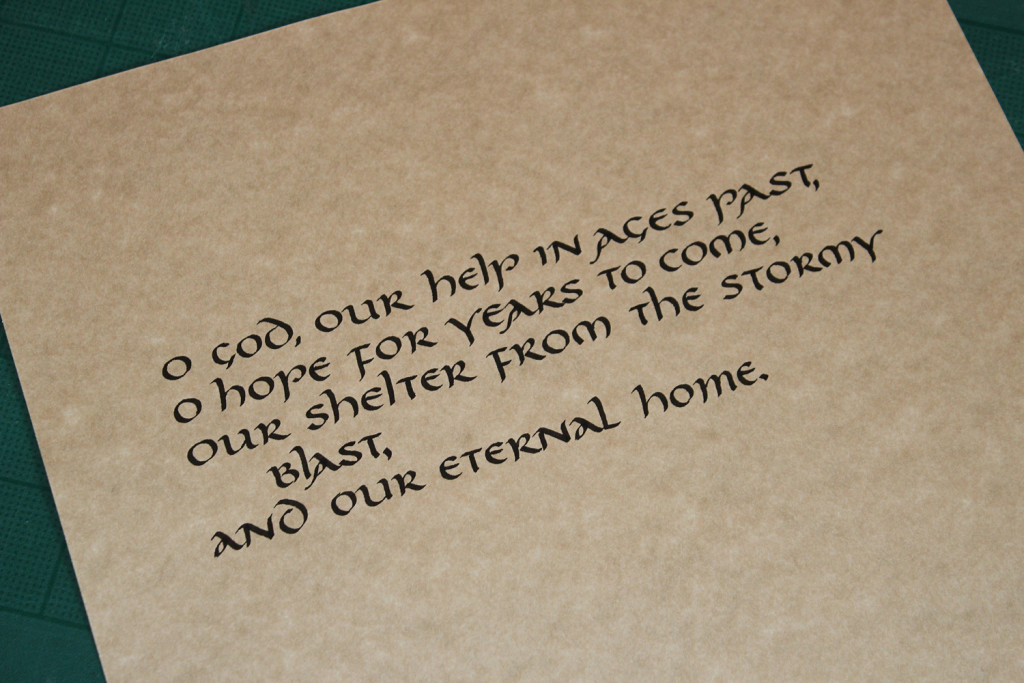 O God, our help in ages past,
O hope for years to come,
our shelter from the stormy
blast,
and our eternal home.